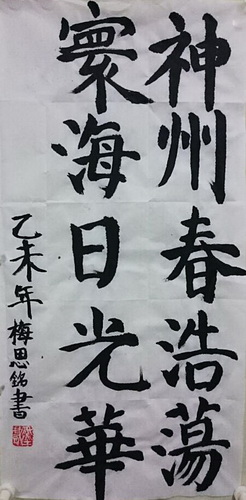 神州春浩蕩
寰海日光華
乙未年梅思銘書